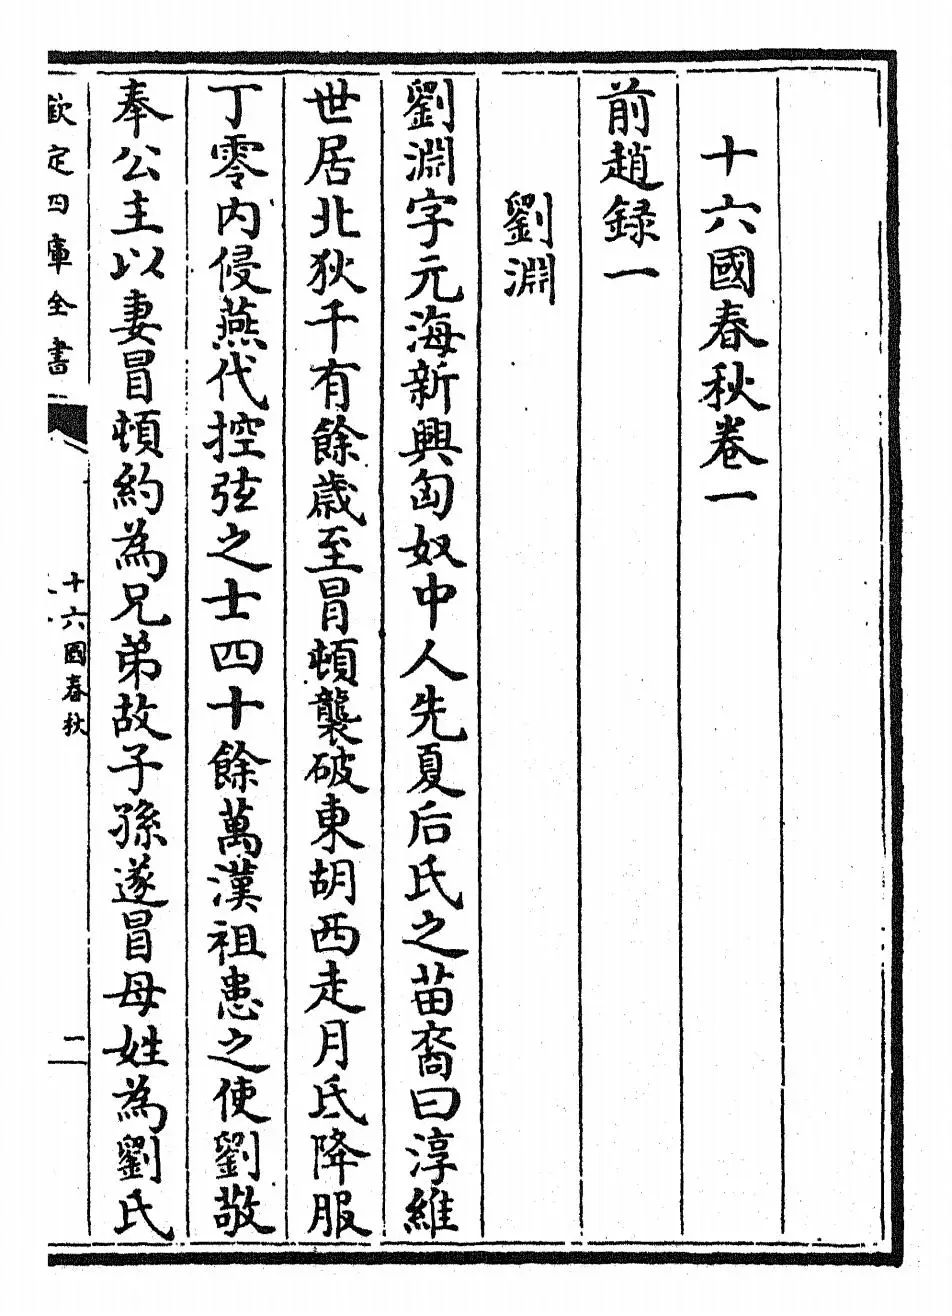 十六國春秋卷一
前趙録一
劉淵
劉淵字元海新興匈奴中人先夏后氏之苗裔曰淳維
世居北狄千有餘歳至冒頓襲破東胡西走月氏降服
丁零内侵燕代控弦之士四十餘萬漢祖患之使劉敬
奉公主以妻冒頓約為兄弟故子孫遂冒母姓為劉氏
欽定四庫全書
十六國春秋
二